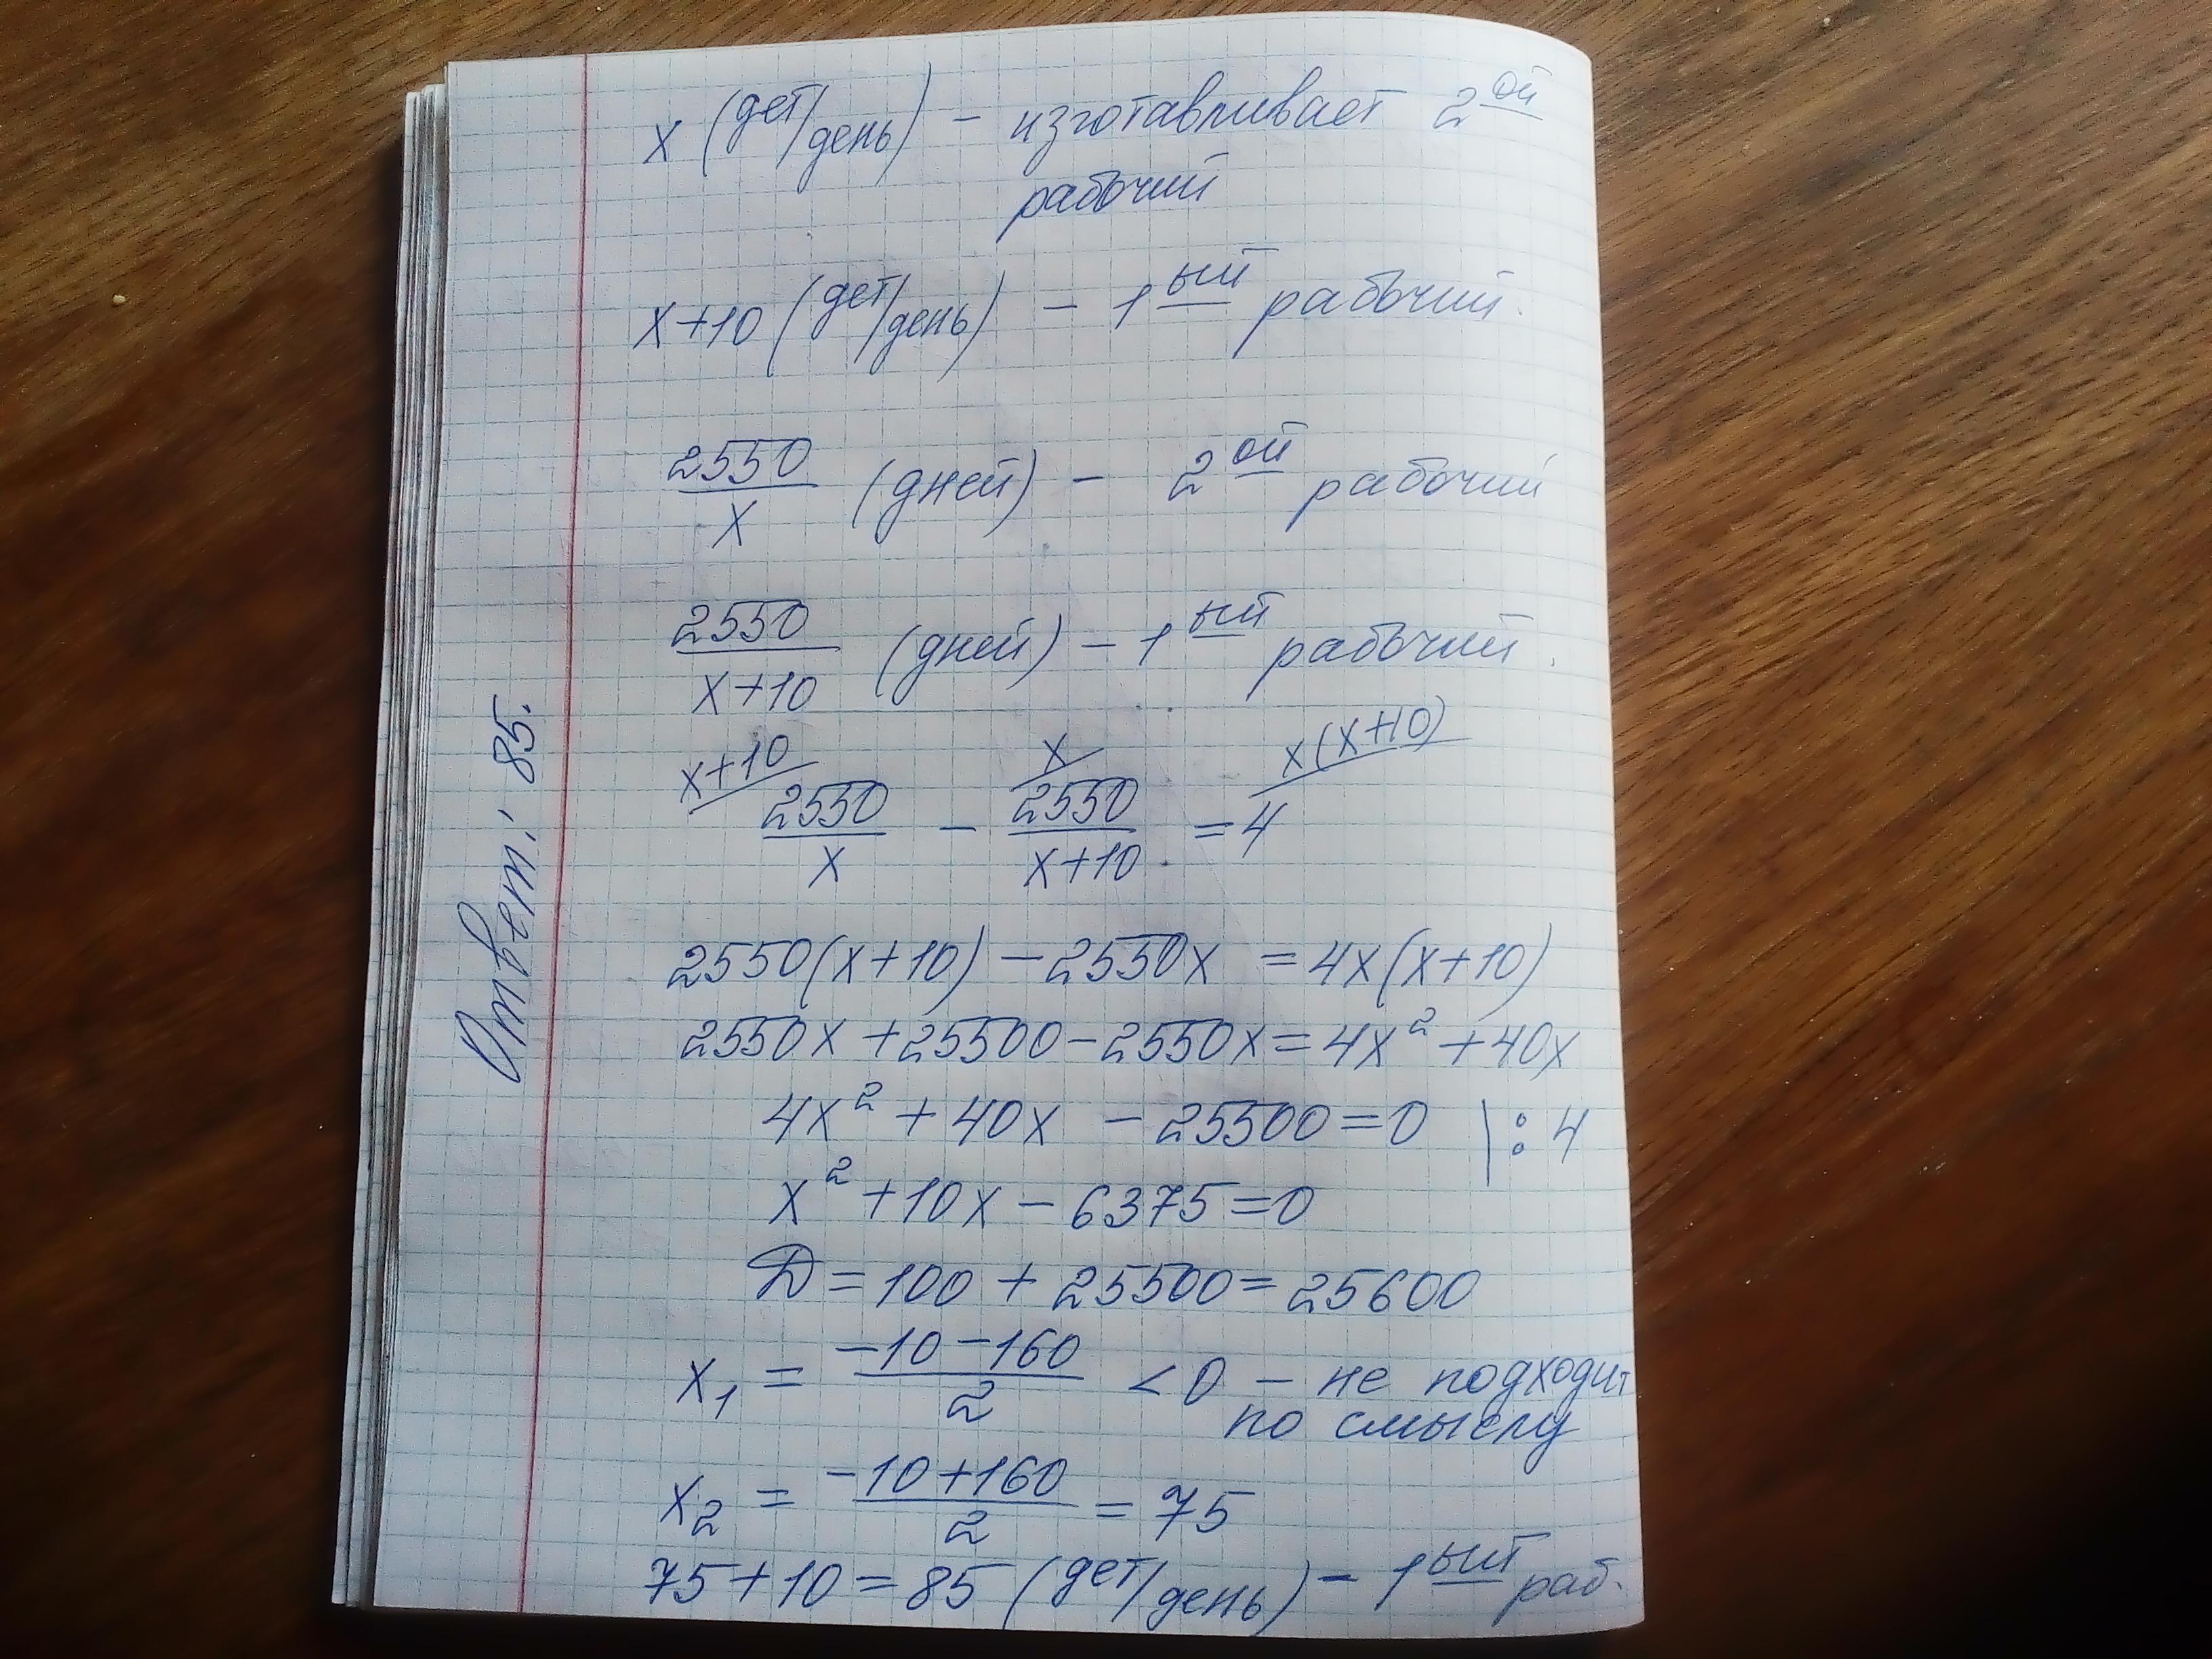 x (дет/день) – изготавливает 2ой
рабочий
x+10 (дет/день) – 1ый рабочий.
2550/x (дней) – 2ой рабочий
2550/(x+10) (дней) – 1ый рабочий.
x+10 x x(x+10)
2550/x – 2550/(x+10) = 4
2550(x+10) – 2550x = 4x(x+10)
2550x + 25500 – 2550x = 4x² + 40x
4x² + 40x – 25500 = 0 | : 4
x² + 10x – 6375 = 0
D = 100 + 25500 = 25600
x₁ = (–10 – 160)/2 < 0 – не подходит
по смыслу
x₂ = (–10 + 160)/2 = 75
75 + 10 = 85 (дет/день) – 1ый раб.
Ответ: 85.